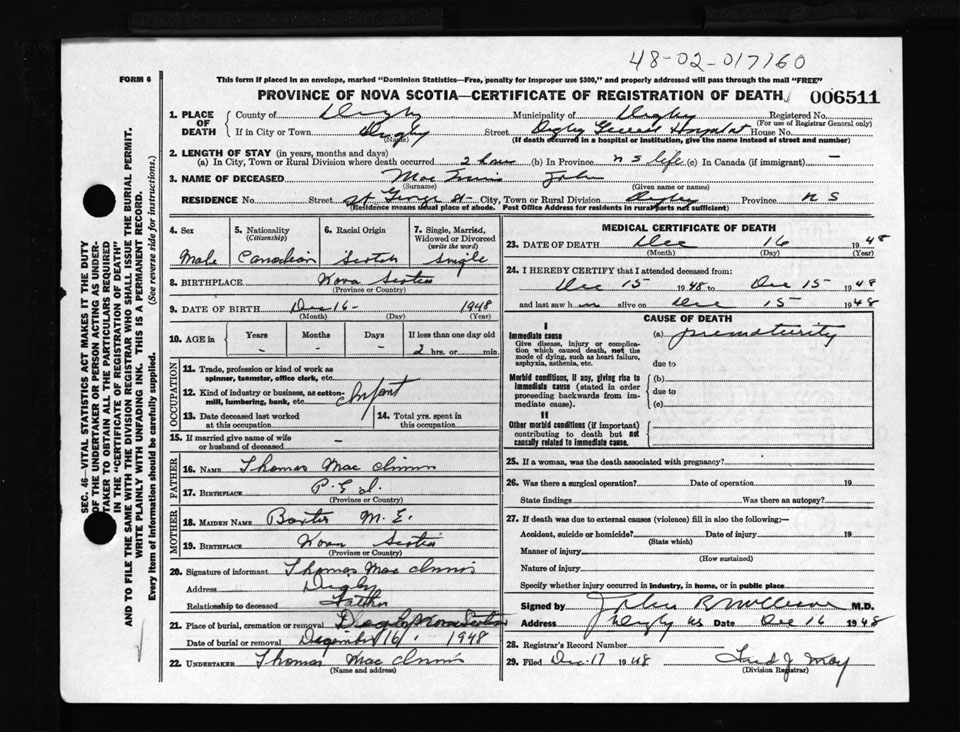 48-02-017160
FORM 6
This form if placed in an envelope, marked "Dominion Statistics—Free, penalty for improper use $300," and properly addressed will pass through the mail "FREE"
PROVINCE OF NOVA SCOTIA—CERTIFICATE OF REGISTRATION OF DEATH 006511
SEC. 46—VITAL STATISTICS ACT MAKES IT THE DUTY
OF THE UNDERTAKER OR PERSON ACTING AS UNDER-
TAKER TO OBTAIN ALL THE PARTICULARS REQUIRED
IN THE "CERTIFICATE OF REGISTRATION OF DEATH"
AND TO FILE THE SAME WITH THE DIVISION REGISTRAR WHO SHALL ISSUE THE BURIAL PERMIT.
WRITE PLAINLY WITH UNFADING INK. THIS IS A PERMANENT RECORD.
Every item of information should be carefully supplied. (See reverse side for instructions.)
1. PLACE OF DEATH
County of Digby Municipality of Digby Registered No.
(For use of Registrar General only)
If in City or Town Digby Street Digby General Hospital House No.
(Name) (If death occurred in a hospital or institution, give the name instead of street and number)
2. LENGTH OF STAY (in years, months and days)
(a) In City, Town or Rural Division where death occurred 2 hours (b) In Province N S life (c) In Canada (if immigrant) —
3. NAME OF DECEASED Mac Innis John
(Surname) (Given name or names)
RESIDENCE No. St George St City, Town or Rural Division Digby Province N S
(Residence means usual place of abode. Post Office Address for residents in rural parts not sufficient)
4. Sex
Male
5. Nationality
(Citizenship)
Canadian
6. Racial Origin
Scotch
7. Single, Married,
Widowed or Divorced
(write the word)
Single
8. BIRTHPLACE Nova Scotia
(Province or Country)
9. DATE OF BIRTH Dec 16 - 1948
(Month) (Day) (Year)
10. AGE in
Years Months Days If less than one day old
- - - 2 hrs. or min.
OCCUPATION
11. Trade, profession or kind of work as
spinner, teamster, office clerk, etc.
12. Kind of industry or business, as cotton-
mill, lumbering, bank, etc. Infant
13. Date deceased last worked
at this occupation
14. Total yrs. spent in
this occupation
15. If married give name of wife
or husband of deceased -
FATHER
16. NAME Thomas Mac Innis
17. BIRTHPLACE P. E. I.
(Province or Country)
MOTHER
18. MAIDEN NAME Baxter M. E.
19. BIRTHPLACE Nova Scotia
(Province or Country)
20. Signature of informant Thomas Mac Innis
Address Digby
Relationship to deceased Father
21. Place of burial, cremation or removal Digby Nova Scotia
Date of burial or removal December 16, 1948
22. UNDERTAKER Thomas Mac Innis
(Name and address)
MEDICAL CERTIFICATE OF DEATH
23. DATE OF DEATH Dec 16 1948
(Month) (Day) (Year)
24. I HEREBY CERTIFY that I attended deceased from:
Dec 15 1948 to Dec 15 1948
and last saw h im alive on Dec 15 1948
CAUSE OF DEATH
I
Immediate cause
Give disease, injury or compli-
cation which caused death, not the
mode of dying, such as heart failure,
asphyxia, asthenia, etc.
(a) prematurity
due to
Morbid conditions, if any, giving rise to
immediate cause (stated in order
proceeding backwards from im-
mediate cause).
(b)
due to
(c)
II
Other morbid conditions (if important)
contributing to death but not
causally related to immediate cause.
25. If a woman, was the death associated with pregnancy?
26. Was there a surgical operation? Date of operation 19
State findings Was there an autopsy?
27. If death was due to external causes (violence) fill in also the following:—
Accident, suicide or homicide? Date of injury 19
(State which)
Manner of injury
(How sustained)
Nature of injury
Specify whether injury occurred in industry, in home, or in public place
Signed by John R M.D.
Address Digby NS Date Dec 16 1948
28. Registrar's Record Number
29. Filed Dec. 17 1948 J May
(Division Registrar)